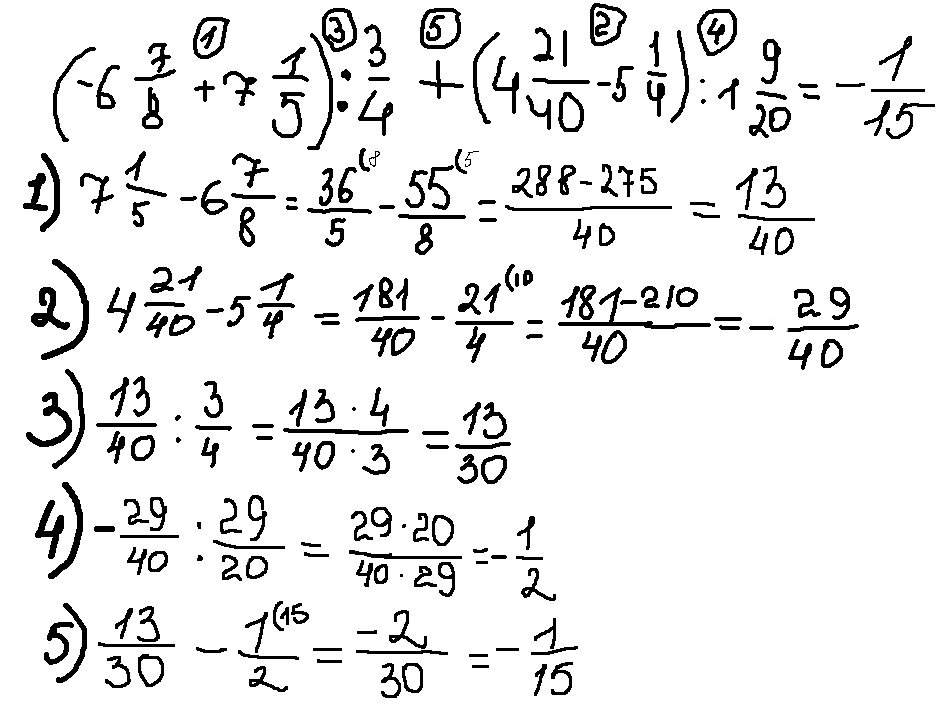 ① ③ ⑤ ② ④
(-6 7/8 + 7 1/5) : 3/4 + (4 21/40 - 5 1/4) : 1 9/20 = - 1/15
1) 7 1/5 - 6 7/8 = 36(8/5 - 55(5/8 = 288-275/40 = 13/40
2) 4 21/40 - 5 1/4 = 181/40 - 21(10/4 = 181-210/40 = - 29/40
3) 13/40 : 3/4 = 13·4/40·3 = 13/30
4) - 29/40 : 29/20 = 29·20/40·29 = - 1/2
5) 13/30 - 1(15/2 = -2/30 = - 1/15